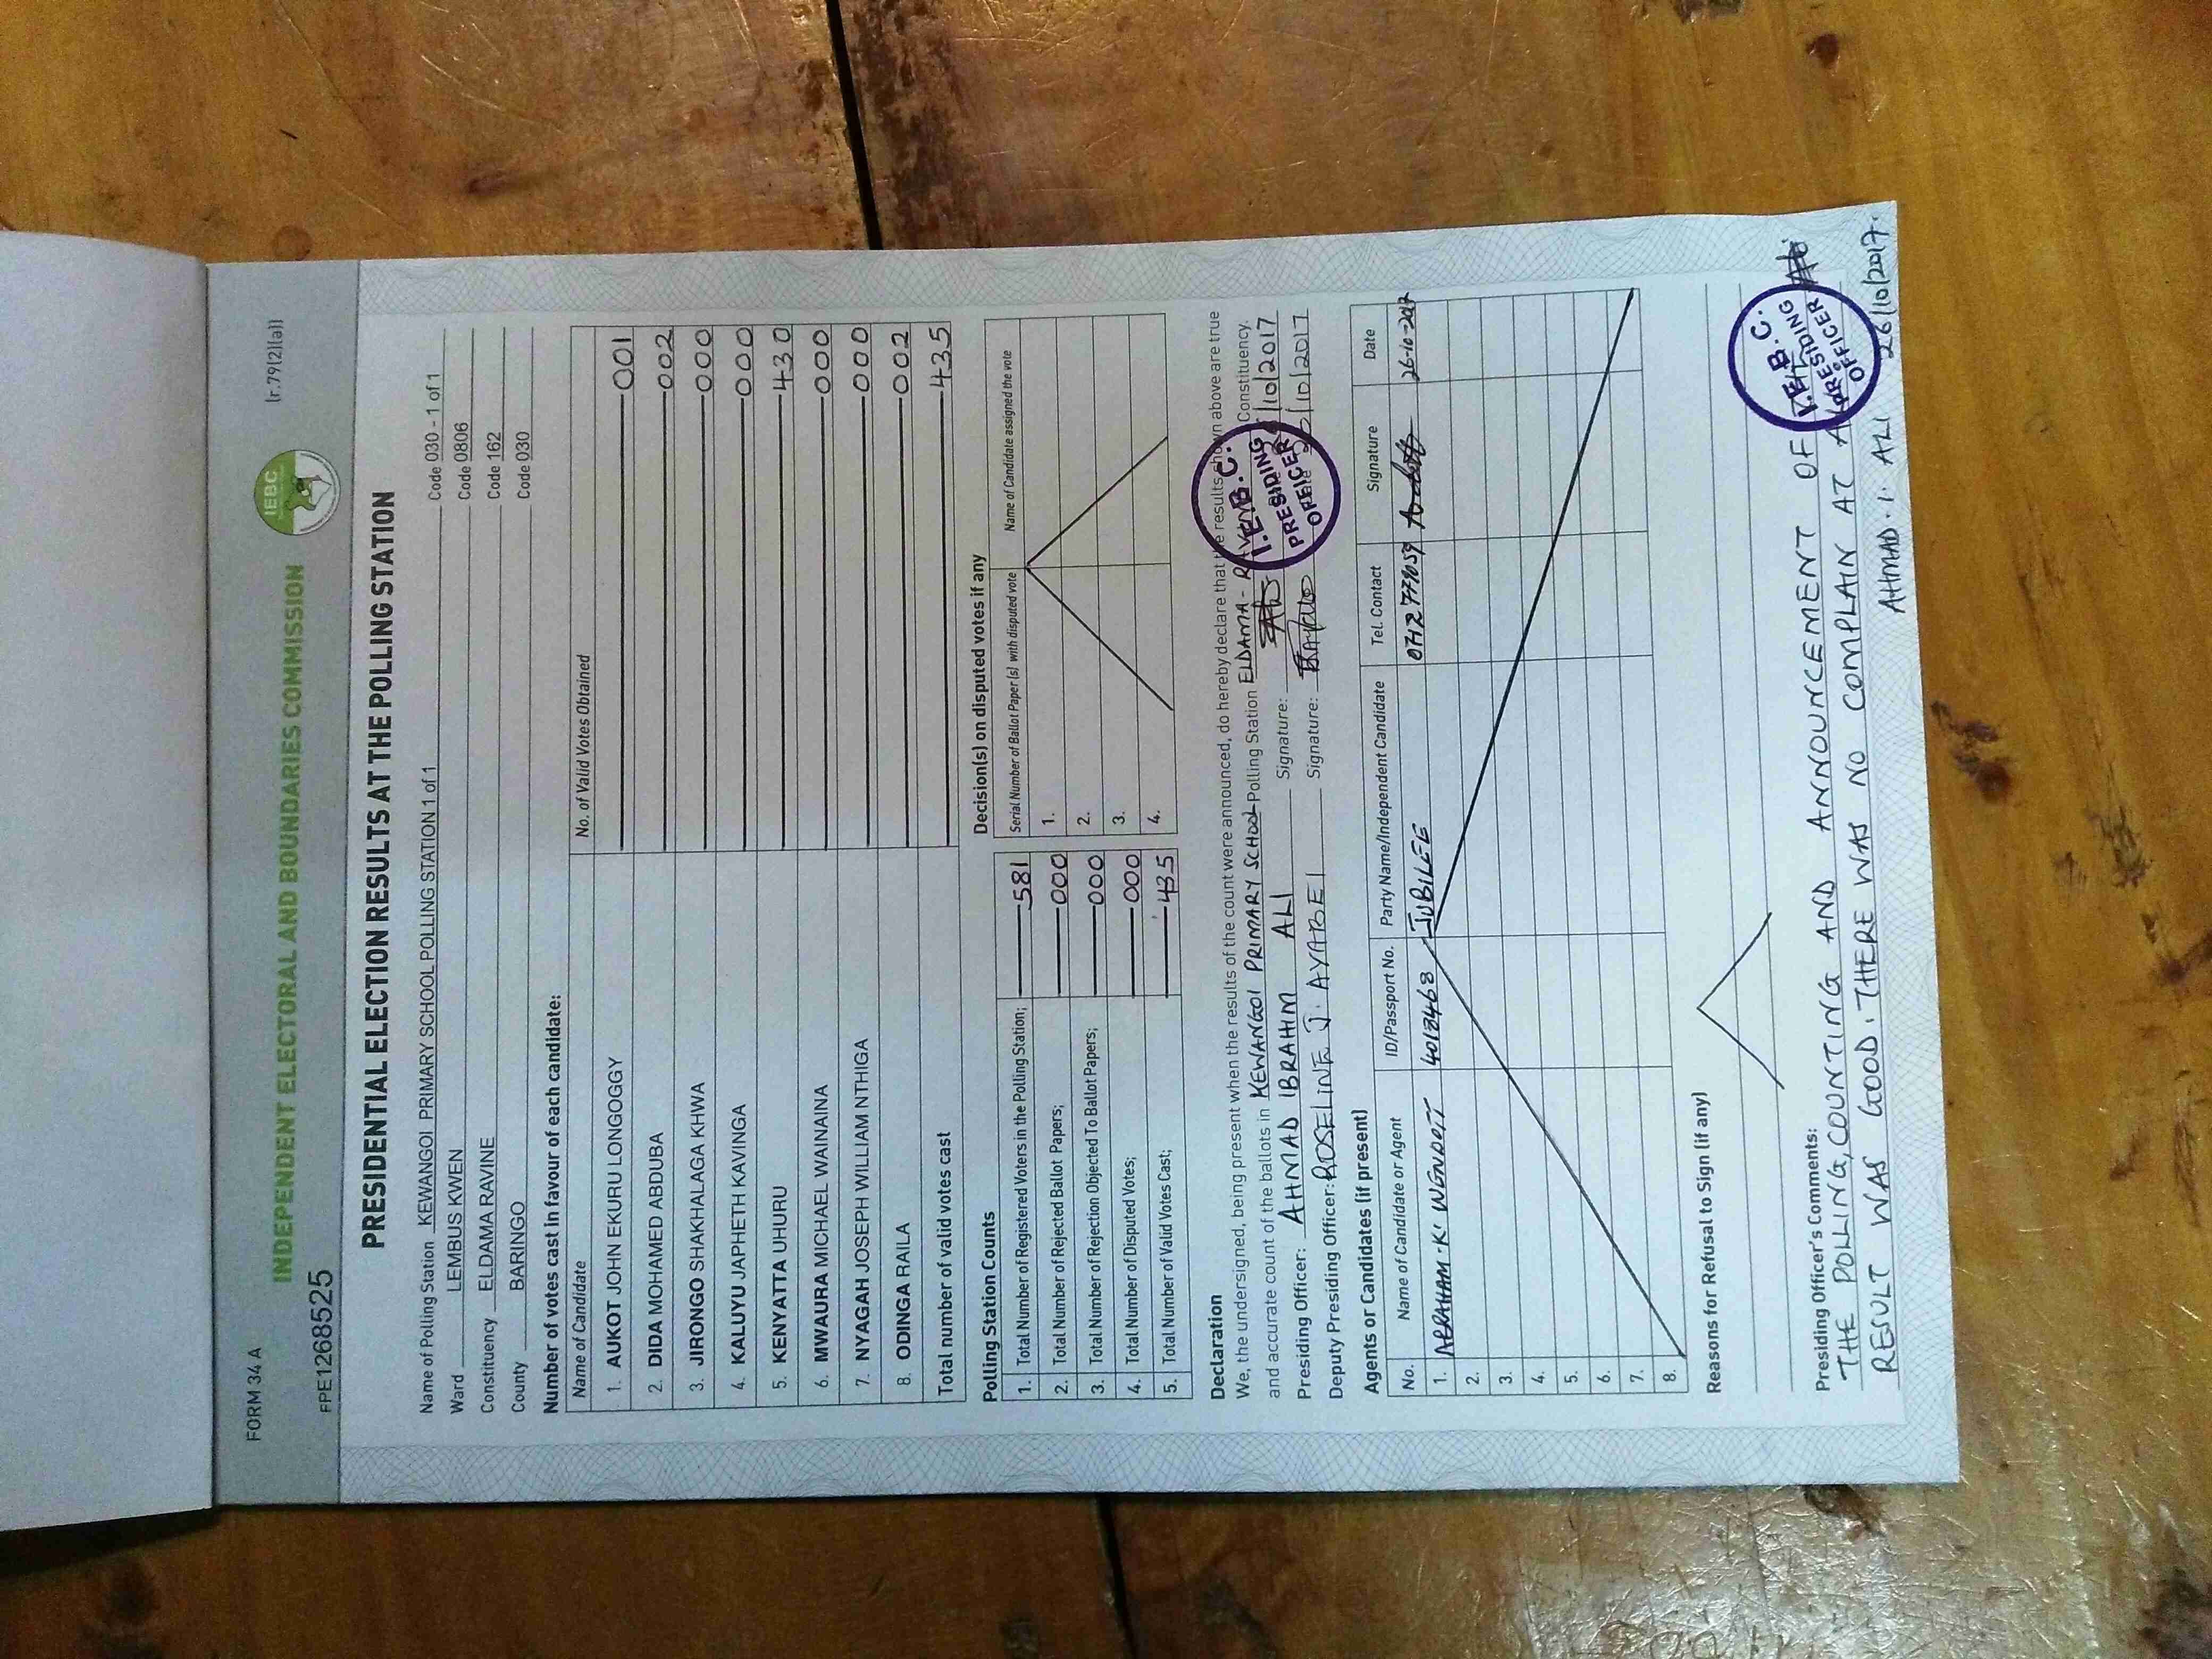 FORM 34 A
(r.79(2)(a))
IEBC
INDEPENDENT ELECTORAL AND BOUNDARIES COMMISSION
FPE1268525
PRESIDENTIAL ELECTION RESULTS AT THE POLLING STATION
Name of Polling Station KEWANGOI PRIMARY SCHOOL POLLING STATION 1 of 1 Code 030 - 1 of 1
Ward LEMBUS KWEN Code 0806
Constituency ELDAMA RAVINE Code 162
County BARINGO Code 030
Number of votes cast in favour of each candidate:
Name of Candidate No. of Valid Votes Obtained
1. AUKOT JOHN EKURU LONGOGGY 001
2. DIDA MOHAMED ABDUBA 002
3. JIRONGO SHAKHALAGA KHWA 000
4. KALUYU JAPHETH KAVINGA 000
5. KENYATTA UHURU 430
6. MWAURA MICHAEL WAINAINA 000
7. NYAGAH JOSEPH WILLIAM NTHIGA 000
8. ODINGA RAILA 002
Total number of valid votes cast 435
Polling Station Counts
1. Total Number of Registered Voters in the Polling Station; 581
2. Total Number of Rejected Ballot Papers; 000
3. Total Number of Rejection Objected To Ballot Papers; 000
4. Total Number of Disputed Votes; 000
5. Total Number of Valid Votes Cast; 435
Decision(s) on disputed votes if any
Serial Number of Ballot Paper (s) with disputed vote Name of Candidate assigned the vote
1.
2.
3.
4.
Declaration
We, the undersigned, being present when the results of the count were announced, do hereby declare that the results shown above are true
and accurate count of the ballots in KEWANGOI PRIMARY SCHOOL Polling Station ELDAMA - RAVINE Constituency.
Presiding Officer: AHMAD IBRAHIM ALI Signature: /10/2017
Deputy Presiding Officer: ROSELINE J. AYABEI Signature: /10/2017
I.E.B.C.
PRESIDING
OFFICER
Agents or Candidates (if present)
No. Name of Candidate or Agent ID/Passport No. Party Name/Independent Candidate Tel. Contact Signature Date
1. ABRAHAM K. JUBILEE 26-10-2017
2.
3.
4.
5.
6.
7.
8.
Reasons for Refusal to Sign (if any)
Presiding Officer's Comments:
THE POLLING, COUNTING AND ANNOUNCEMENT OF
RESULT WAS GOOD. THERE WAS NO COMPLAIN AT
I.E.B.C.
PRESIDING
OFFICER
AHMAD. I. ALI 26/10/2017.